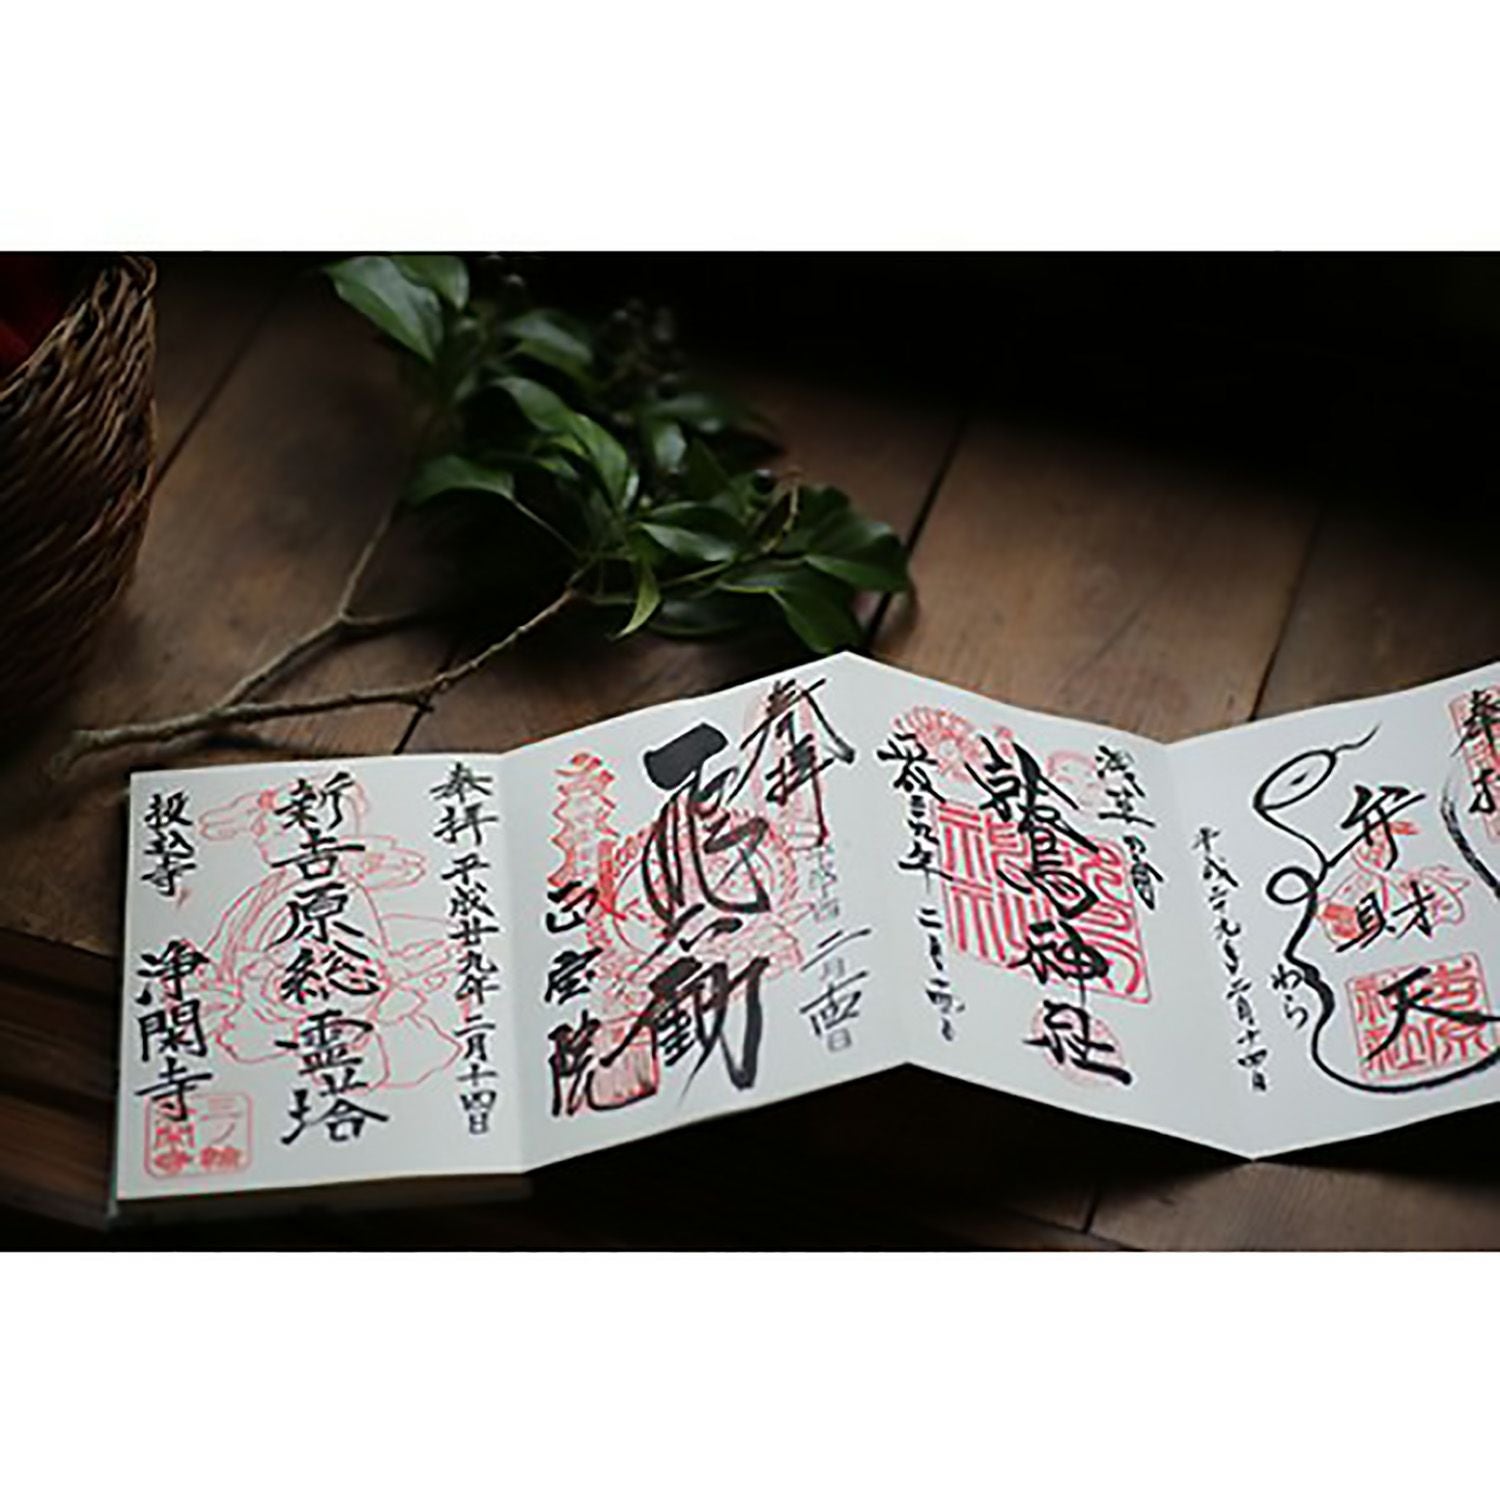 奉拝 平成廿九年二月十四日
新吉原総霊塔
投込寺 浄閑寺
三ノ輪
奉拝
二月十四日
正宝院
浅草田圃
鷲神社
平成二十九年二月十四日
弁財天
わら
平成二十九年二月十四日